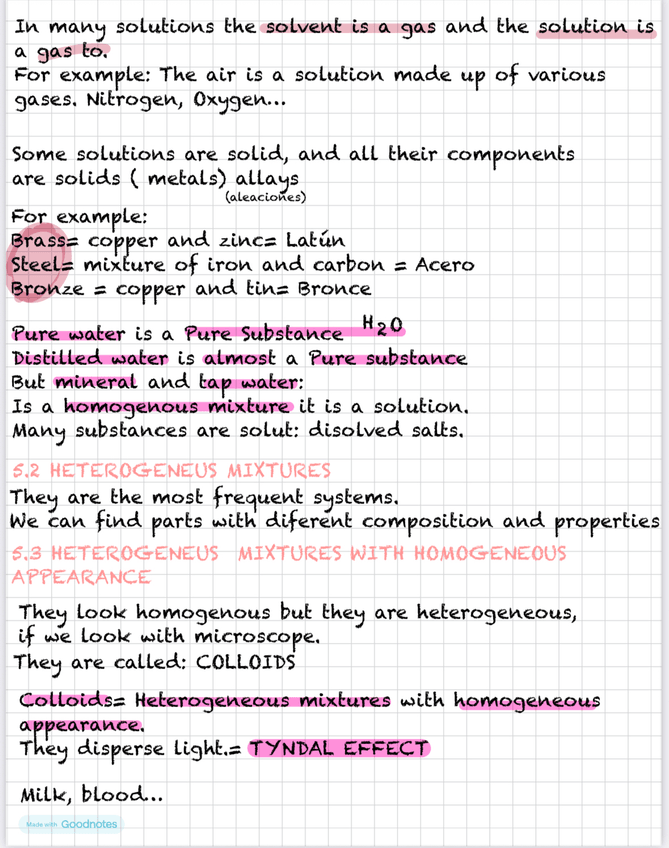 In many solutions the solvent is a gas and the solution is
a gas to.
For example: The air is a solution made up of various
gases. Nitrogen, Oxygen...
Some solutions are solid, and all their components
are solids ( metals) allays
(aleaciones)
For example:
Brass= copper and zinc= Latún
Steel= mixture of iron and carbon = Acero
Bronze = copper and tin= Bronce
Pure water is a Pure Substance H2O
Distilled water is almost a Pure substance
But mineral and tap water:
Is a homogenous mixture it is a solution.
Many substances are solut: disolved salts.
5.2 HETEROGENEUS MIXTURES
They are the most frequent systems.
We can find parts with diferent composition and properties
5.3 HETEROGENEUS MIXTURES WITH HOMOGENEOUS
APPEARANCE
They look homogenous but they are heterogeneous,
if we look with microscope.
They are called: COLLOIDS
Colloids= Heterogeneous mixtures with homogeneous
appearance.
They disperse light.= TYNDAL EFFECT
Milk, blood...
Made with Goodnotes